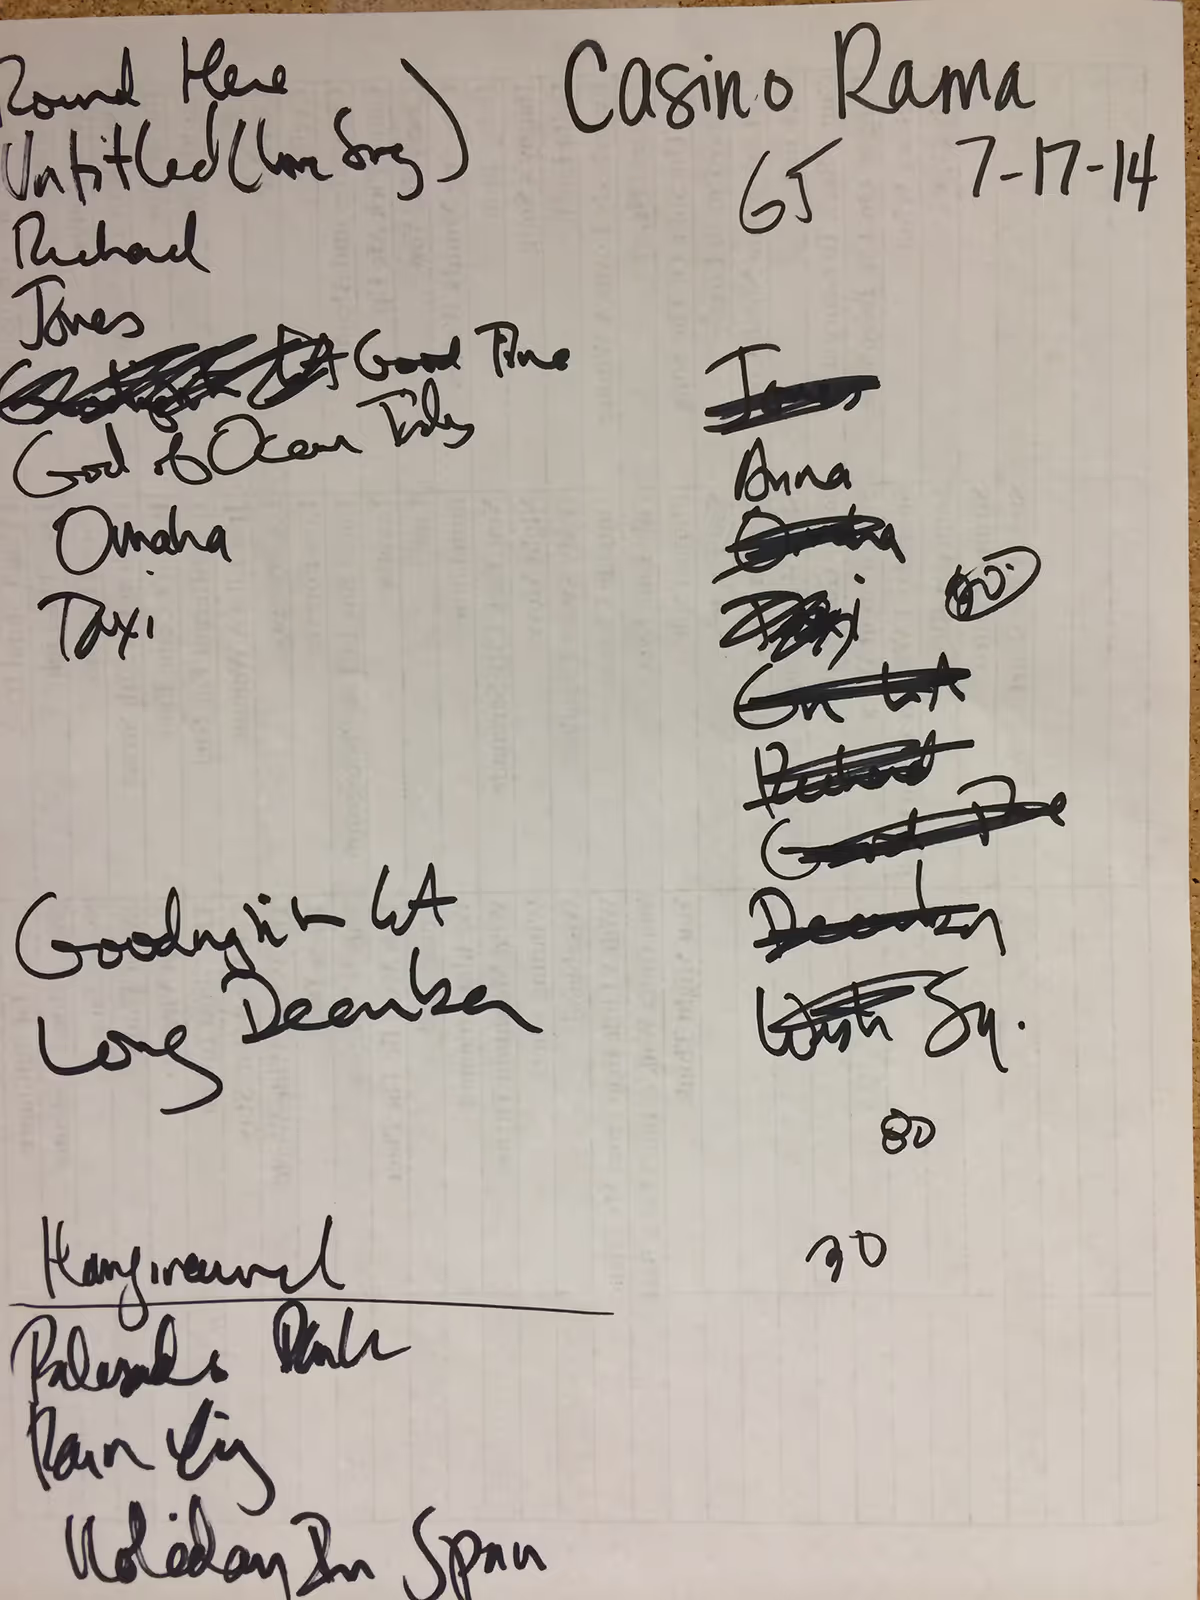 Round Here
Untitled (Love Song)
Richard
Jones
Good Time
God of Ocean Tides
Omaha
Taxi
Goodnight LA
Long December
Hanginaround
Palisades Park
Rain King
Holiday In Spain
Casino Rama
GJ 7-17-14
Jones
Anna
Omaha
Taxi
Gn LA
Richard
Good Time
December
Wash Sq.
80
30